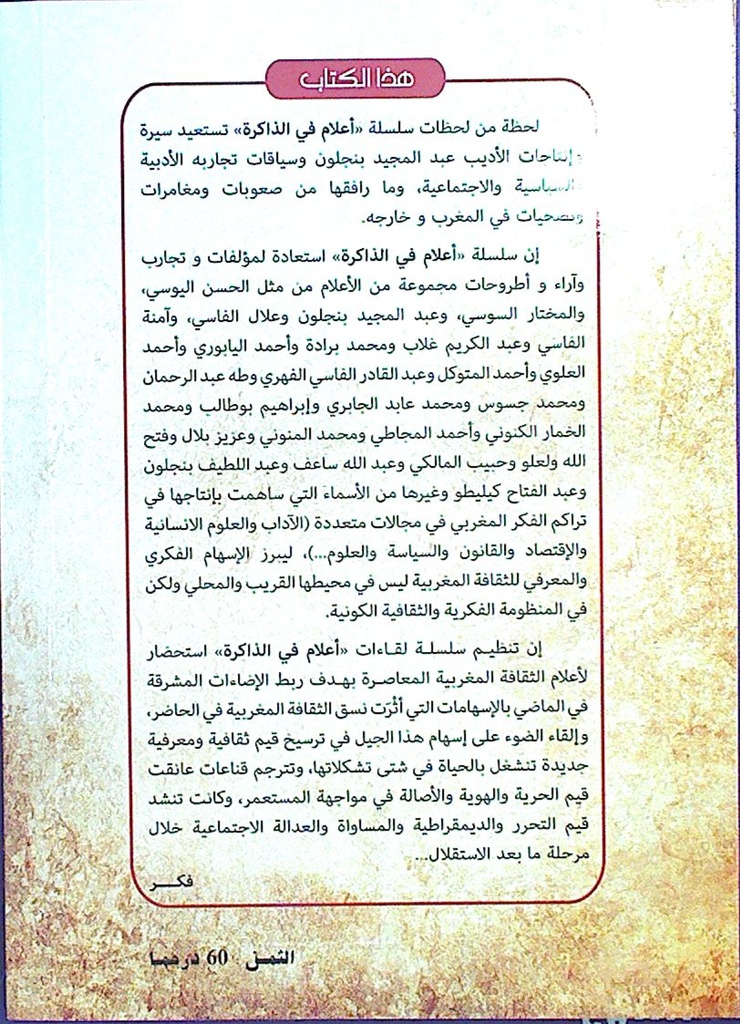 هذا الكتاب
لحظة من لحظات سلسلة «أعلام في الذاكرة» تستعيد سيرة
وإنتاجات الأديب عبد المجيد بنجلون وسياقات تجاربه الأدبية
والسياسية والاجتماعية، وما رافقها من صعوبات ومغامرات
وتضحيات في المغرب و خارجه.
إن سلسلة «أعلام في الذاكرة» استعادة لمؤلفات و تجارب
وآراء و أطروحات مجموعة من الأعلام من مثل الحسن اليوسي،
والمختار السوسي، وعبد المجيد بنجلون وعلال الفاسي، وآمنة
الفاسي وعبد الكريم غلاب ومحمد برادة وأحمد اليابوري وأحمد
العلوي وأحمد المتوكل وعبد القادر الفاسي الفهري وطه عبد الرحمان
ومحمد جسوس ومحمد عابد الجابري وإبراهيم بوطالب ومحمد
الخمار الكنوني وأحمد المجاطي ومحمد المنوني وعزيز بلال وفتح
الله ولعلو وحبيب المالكي وعبد الله ساعف وعبد اللطيف بنجلون
وعبد الفتاح كيليطو وغيرها من الأسماء التي ساهمت بإنتاجها في
تراكم الفكر المغربي في مجالات متعددة (الآداب والعلوم الانسانية
والإقتصاد والقانون والسياسة والعلوم...)، ليبرز الإسهام الفكري
والمعرفي للثقافة المغربية ليس في محيطها القريب والمحلي ولكن
في المنظومة الفكرية والثقافية الكونية.
إن تنظيم سلسلة لقاءات «أعلام في الذاكرة» استحضار
لأعلام الثقافة المغربية المعاصرة بهدف ربط الإضاءات المشرقة
في الماضي بالإسهامات التي أثْرَت نسق الثقافة المغربية في الحاضر،
وإلقاء الضوء على إسهام هذا الجيل في ترسيخ قيم ثقافية ومعرفية
جديدة تنشغل بالحياة في شتى تشكلاتها، وتترجم قناعات عانقت
قيم الحرية والهوية والأصالة في مواجهة المستعمر، وكانت تنشد
قيم التحرر والديمقراطية والمساواة والعدالة الاجتماعية خلال
مرحلة ما بعد الاستقلال...
فكـــر
الثمن 60 درهما